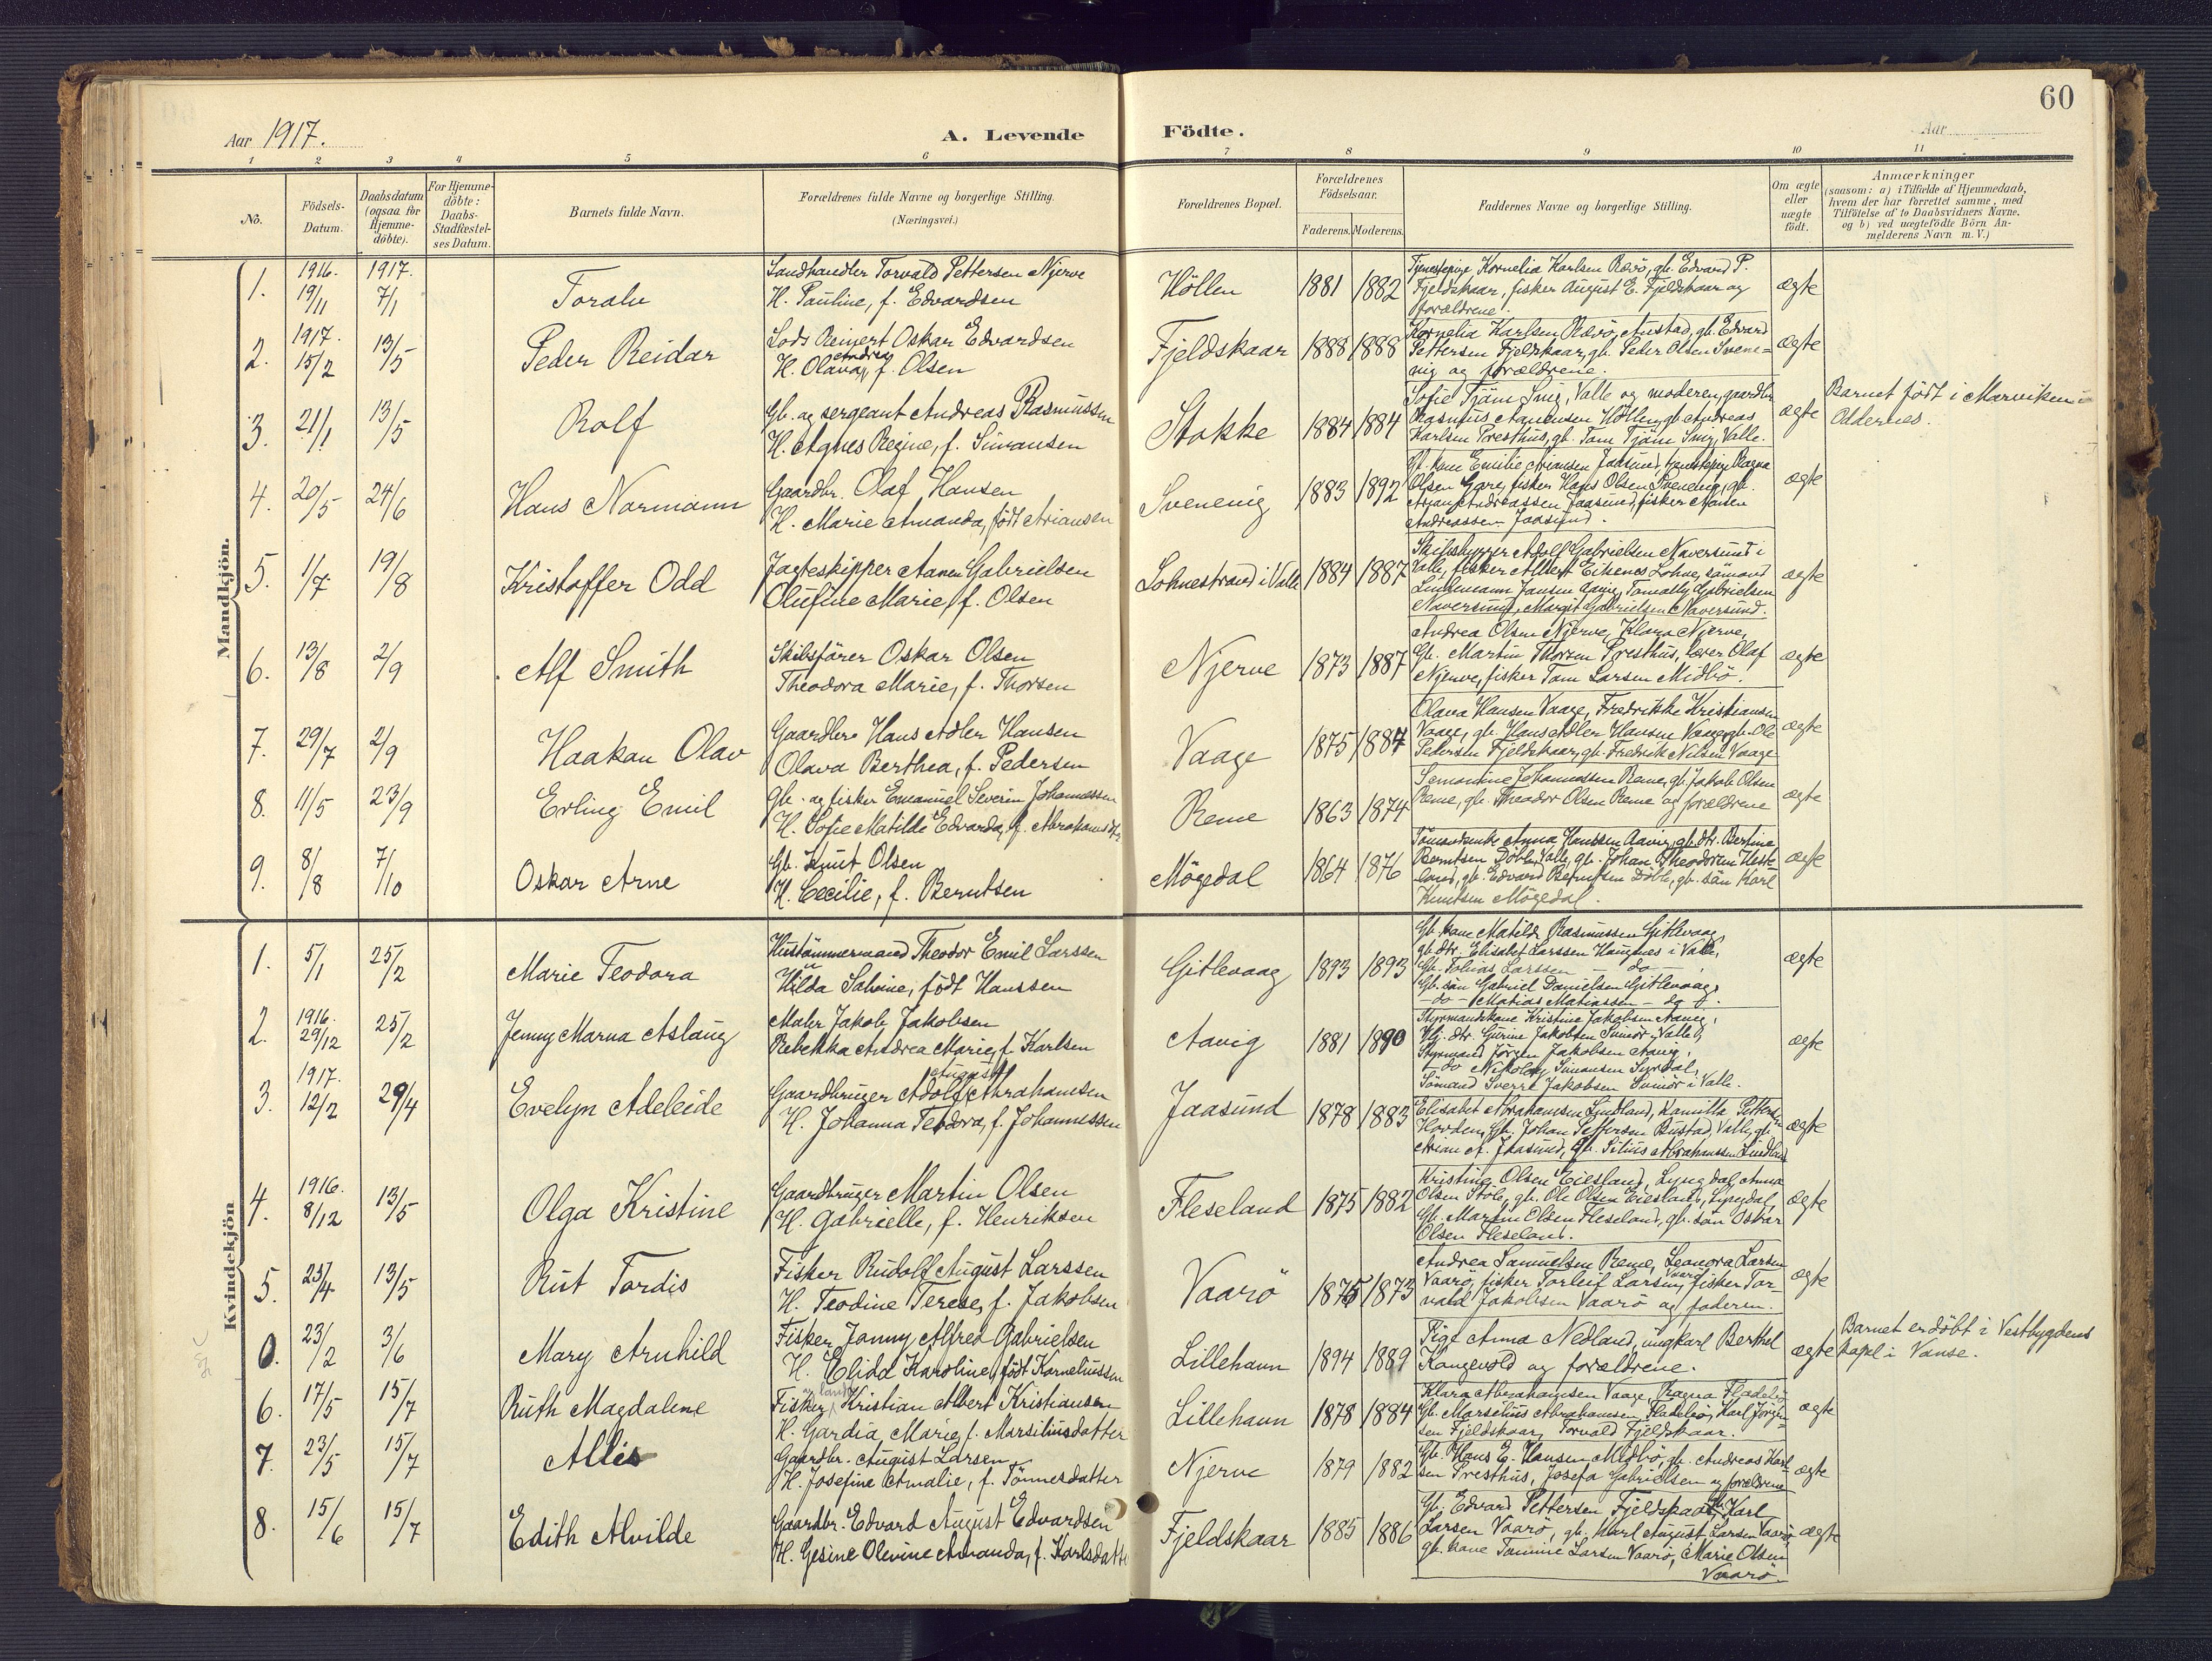 60
Aar 1917.
A. Levende Födte.
Aar
1 2 3 4 5 6 7 8 9 10 11
No.
Födsels-Datum.
Daabsdatum (ogsaa for Hjemme-döbte).
For Hjemme-döbte: Daabs-Stadfæstel-ses Datum.
Barnets fulde Navn.
Forældrenes fulde Navne og borgerlige Stilling. (Næringsvei.)
Forældrenes Bopæl.
Forældrenes Födselsaar.
Faderens. Moderens.
Faddernes Navne og borgerlige Stilling.
Om ægte eller uægte födt.
Anmærkninger
(saasom: a) i Tilfælde af Hjemmedaab,
hvem der har forrettet samme, med
Tilföielse af to Daabsvidners Navne,
og b) ved uægtefödte Börn An-
melderens Navn m. V.)
Mandkjön.
1. 1916. 19/11 1917. 7/1
Toralv
Landhandler Torvald Pettersen Njerve
H. Pauline, f. Edvardsen
Höllen 1881 1882
Tjenestepige Kornelia Karlsen Rævö, gb. Edvard P.
Fjeldskaar, fisker August E. Fjeldskaar og
forældrene.
ægte
2. 1917. 15/2 13/5
Peder Reidar
Lods Reinert Oskar Edvardsen
H. Olava Andrea, f. Olsen
Fjeldskaar 1888 1888
Kornelia Karlsen Rævö, Austad, gb. Edvard
Pettersen Fjeldskaar, gb. Peder Olsen Svene=
vig og forældrene.
ægte
3. 21/1 13/5
Rolf
Gb. og sergeant Andreas Rasmussen
H. Agnes Regine, f. Simansen
Stokke 1884 1884
Sofie Tjöm Snig, Valle og moderen, gaardbr.
Rasmus Aanensen Höllen, gb. Andreas
Karlsen Presthus, gb. Tom Tjöm Snig, Valle.
ægte
Barnet födt i Marviken i
Oddernes.
4. 20/5 24/6
Hans Normann
Gaardbr. Olaf Hansen
H. Marie Amanda, födt Ariansen
Svenevig 1883 1892
Gb. kone Emilie Ariansen Jaasund, tjenestepige Ragna
Olsen Gare, fisker Hans Olsen Svenevig, gb.
Arian Andreassen Jaasund, fisker
Andreassen Jaasund.
ægte
5. 1/7 19/8
Kristoffer Odd
Jagteskipper Aanen Gabrielsen
Olufine Marie, f. Olsen
Lohnestrand i Valle 1884 1887
Skibsbygger Adolf Gabrielsen Naversund i
Valle, fisker Albert Lohne, sömand
Lindemann Jansen Aavig, Gabrielsen
Naversund, Margit Gabrielsen Naversund.
ægte
6. 13/8 2/9
Alf Smith
Skibsförer Oskar Olsen
Theodora Marie, f. Thorsen
Njerve 1873 1887
Andrea Olsen Njerve, Klara Njerve,
Gb. Martin Thorsen Presthus, lærer Olaf
Njerve, fisker Tom Larsen Midbö.
ægte
7. 29/7 2/9
Haakon Olav
Gaardbr. Hans Adler Hansen
Olava Berthea, f. Pedersen
Vaage 1875 1884
Olava Hansen Vaage, Fredrikke Kristiansen
Vaage, gb. Hans Adler Hansen Vaage, gb. Ole
Pedersen Fjeldskaar, gb. Fredrik Nilsen Vaage
ægte
8. 11/5 23/9
Erling Emil
Gb. og fisker Emanuel Severin Johannessen
H. Sofie Matilde Edvarda, f. Abrahamsdtr.
Reme 1863 1874
Johannessen Reme, gb. Jakob Olsen
Reme, gb. Theodor Olsen Reme og forældrene
ægte
9. 8/8 7/10
Oskar Arne
Gb. Knut Olsen
H. Cecilie, f. Berntsen
Mögedal 1864 1876
Sömandsenke Anna Hanssen Aavig, gb. dtr. Bertine
Berntsen Döble, Valle, gb. Johan Theodorsen
gb. Edvard Berntsen Döble, gb. sön Karl
Knutsen Mögedal.
ægte
Kvindekjön
1. 5/1 25/2
Marie Teodora
Hustömmermand Theodor Emil Larssen
Hilda Sabine, födt Hanssen
Gitlevaag 1893 1893
Gb. kone Matilde Rasmussen Gitlevaag,
gb. dtr. Elisabet Larssen Haugnes i Valle,
Gb. Tobias Larssen – do –,
Gb. sön Gabriel Danielsen Gitlevaag,
– do – Matias Matiassen – do –.
ægte
2. 1916. 29/12 25/2
Jenny Marna Aslaug
Maler Jakob Jakobsen
Rebekka Andrea Marie, f. Karlsen
Aavig 1881 1890
Styrmandskone Kristine Jakobsen Aavig,
dtr. Gurine Jakobsen Valle,
Styrmand Jörgen Jakobsen Aavig,
– do – Nikolay Simonsen
Sömand Sverre Jakobsen i Valle.
ægte
3. 1917. 12/2 29/4
Evelyn Adeleide
Gaardbruger Adolf August Abrahamsen
H. Johanna Teodora, f. Johannessen
Jaasund 1878 1883
Elisabet Abrahamsen Lindland, Kamilla Pettersen
Hovden, gb. Johan Peffersen Bustad, Valle, gb.
Arian A. Jaasund, gb. Abrahamsen Lindland
ægte
4. 1916. 8/12 13/5
Olga Kristine
Gaardbruger Martin Olsen
H. Gabrielle, f. Henriksen
Fleseland 1875 1882
Kristine Olsen Eiesland, Lyngdal, Anna
Olsen Stöle, gb. Ole Olsen Eiesland, Lyngdal,
Gb. Martin Olsen Fleseland, gb. sön Oskar
Olsen Fleseland.
ægte
5. 25/4 13/5
Rut Tordis
Fisker Rudolf August Larssen
H. Teodine Terese, f. Jakobsen
Vaarö 1875 1873
Andrea Samuelsen Reme, Leonora Larsen
Vaarö, fisker Torleif Larsen, Vaarö, fisker Tor-
vald Jakobsen Vaarö og faderen.
ægte
0. 23/2 3/6
Mary Arnhild
Fisker Jonny Alfred Gabrielsen
H. Elida Karoline, födt Korneliussen
Lillehavn 1894 1889
Pige Anna Nedland, ungkarl Berthel
Kongevold og forældrene.
ægte
Barnet er döbt i Vestbygdens
kapel i Vanse.
6. 17/5 15/7
Ruth Magdalene
Fisker Kristian Albert Kristiansen
H. Gardia Marie, f. Marsiliusdatter
Lillehavn 1878 1884
Klara Abrahamsen Vaage, Ragna Fladebö,
Gb. Marselius Abrahamsen Fladebö, Karl Jörgen=
sen Fjeldskaar, Torvald Fjeldskaar.
ægte
7. 23/5 15/7
Allis
Gaardbr. August Larsen
H. Josefine Amalie, f. Tönnesdatter
Njerve 1879 1882
Gb. Hans E. Hansen Midbö, gb. Andreas Karl-
sen Presthus, Josefa Gabrielsen og forældrene
ægte
8. 15/6 15/7
Edith Alvilde
Gaardbr. Edvard August Edvardsen
H. Gesine Olevine Amanda, f. Karlsdatter
Fjeldskaar 1885 1886
Gb. Edvard Pettersen Fjeldskaar, Karl
Larsen Vaarö, gb. Karl August Larsen Vaarö,
gb. kone Tomine Larsen Vaarö, Marie Olsen
Vaarö.
ægte